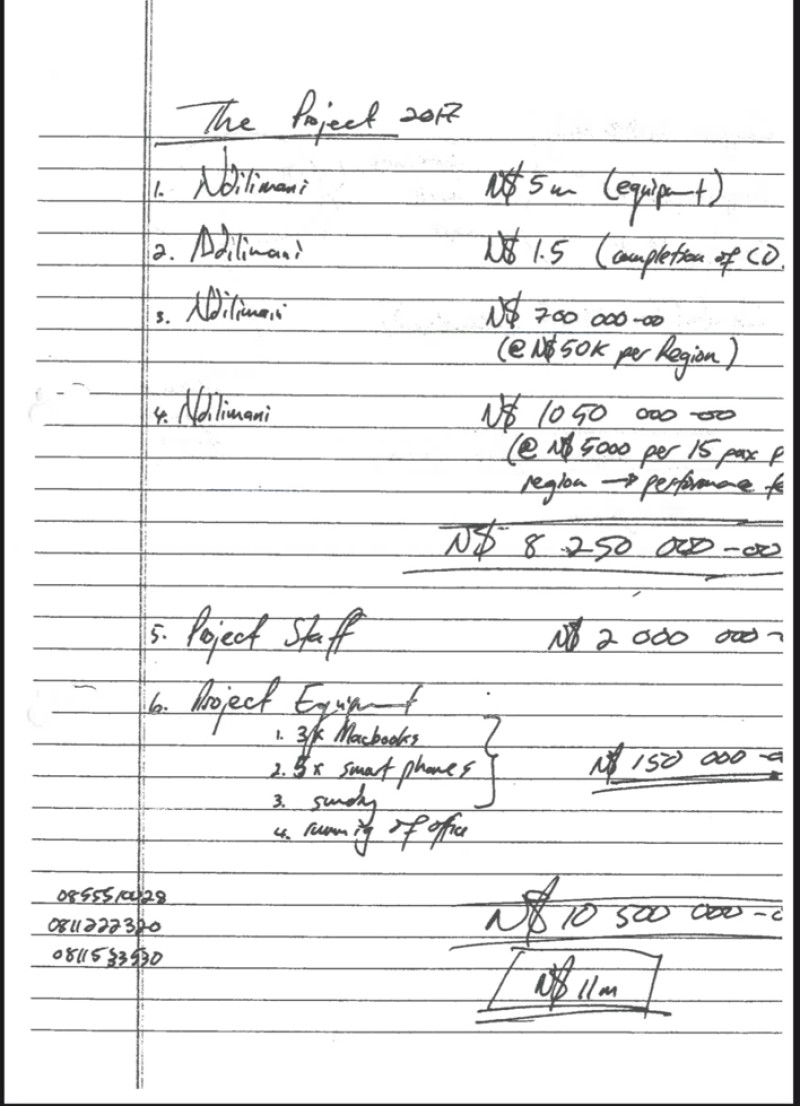 The Project 2017
1. Ndilimani N$ 5m (equipment)
2. Ndilimani N$ 1.5 (completion of CD.
3. Ndilimani N$ 700 000-00
(@ N$ 50K per Region)
4. Ndilimani N$ 1050 000-00
(@ N$ 5000 per 15 pax p
region → performance fe
N$ 8 250 000-00
5. Project Staff N$ 2 000 000-
6. Project Equipment
1. 3x Macbooks
2. 5x smart phones N$ 150 000-0
3. sundry
4. running of office
N$ 10 500 000-0
N$ 11m
0811222320